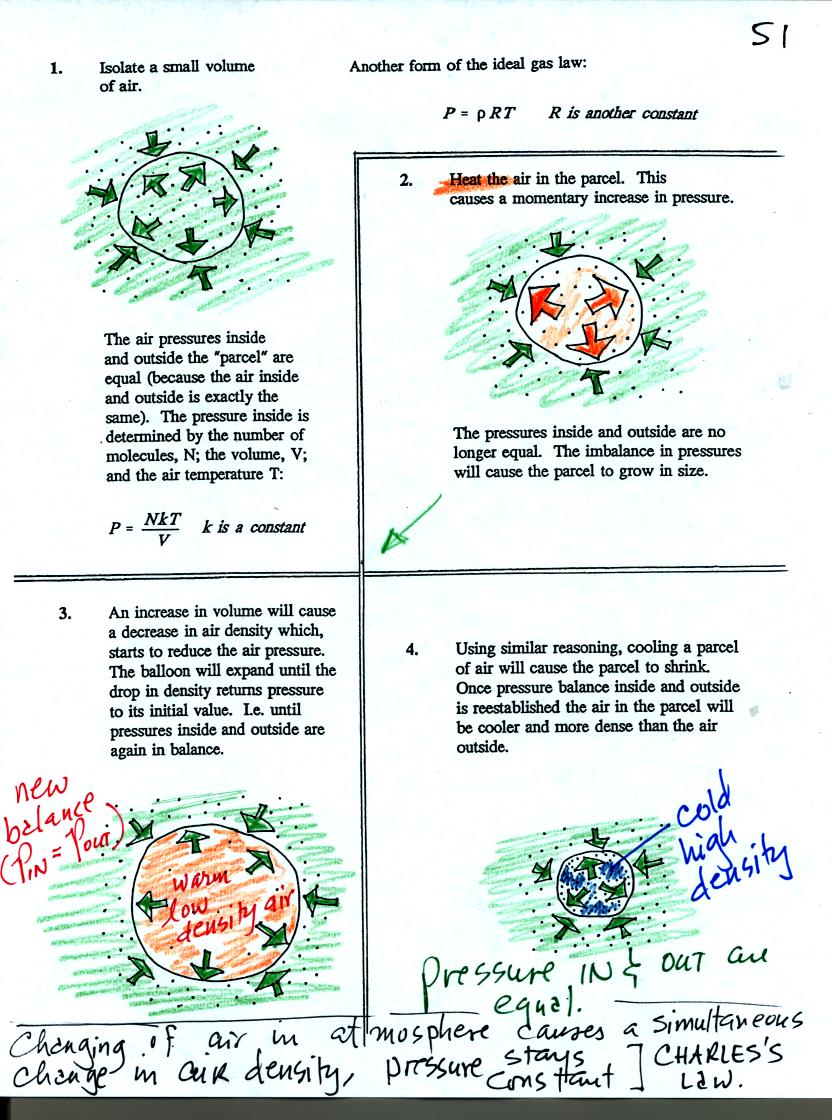 51
1. Isolate a small volume
of air.
Another form of the ideal gas law:
P = ρRT R is another constant
The air pressures inside
and outside the "parcel" are
equal (because the air inside
and outside is exactly the
same). The pressure inside is
determined by the number of
molecules, N; the volume, V;
and the air temperature T:
P = NkT/V k is a constant
2. Heat the air in the parcel. This
causes a momentary increase in pressure.
The pressures inside and outside are no
longer equal. The imbalance in pressures
will cause the parcel to grow in size.
3. An increase in volume will cause
a decrease in air density which,
starts to reduce the air pressure.
The balloon will expand until the
drop in density returns pressure
to its initial value. I.e. until
pressures inside and outside are
again in balance.
new
balance
(PIN = POUT)
warm
low
density air
4. Using similar reasoning, cooling a parcel
of air will cause the parcel to shrink.
Once pressure balance inside and outside
is reestablished the air in the parcel will
be cooler and more dense than the air
outside.
cold
high
density
Pressure IN & OUT are
equal.
Changing of air in atmosphere causes a simultaneous
change in air density, pressure stays
constant ] CHARLES'S
LAW.